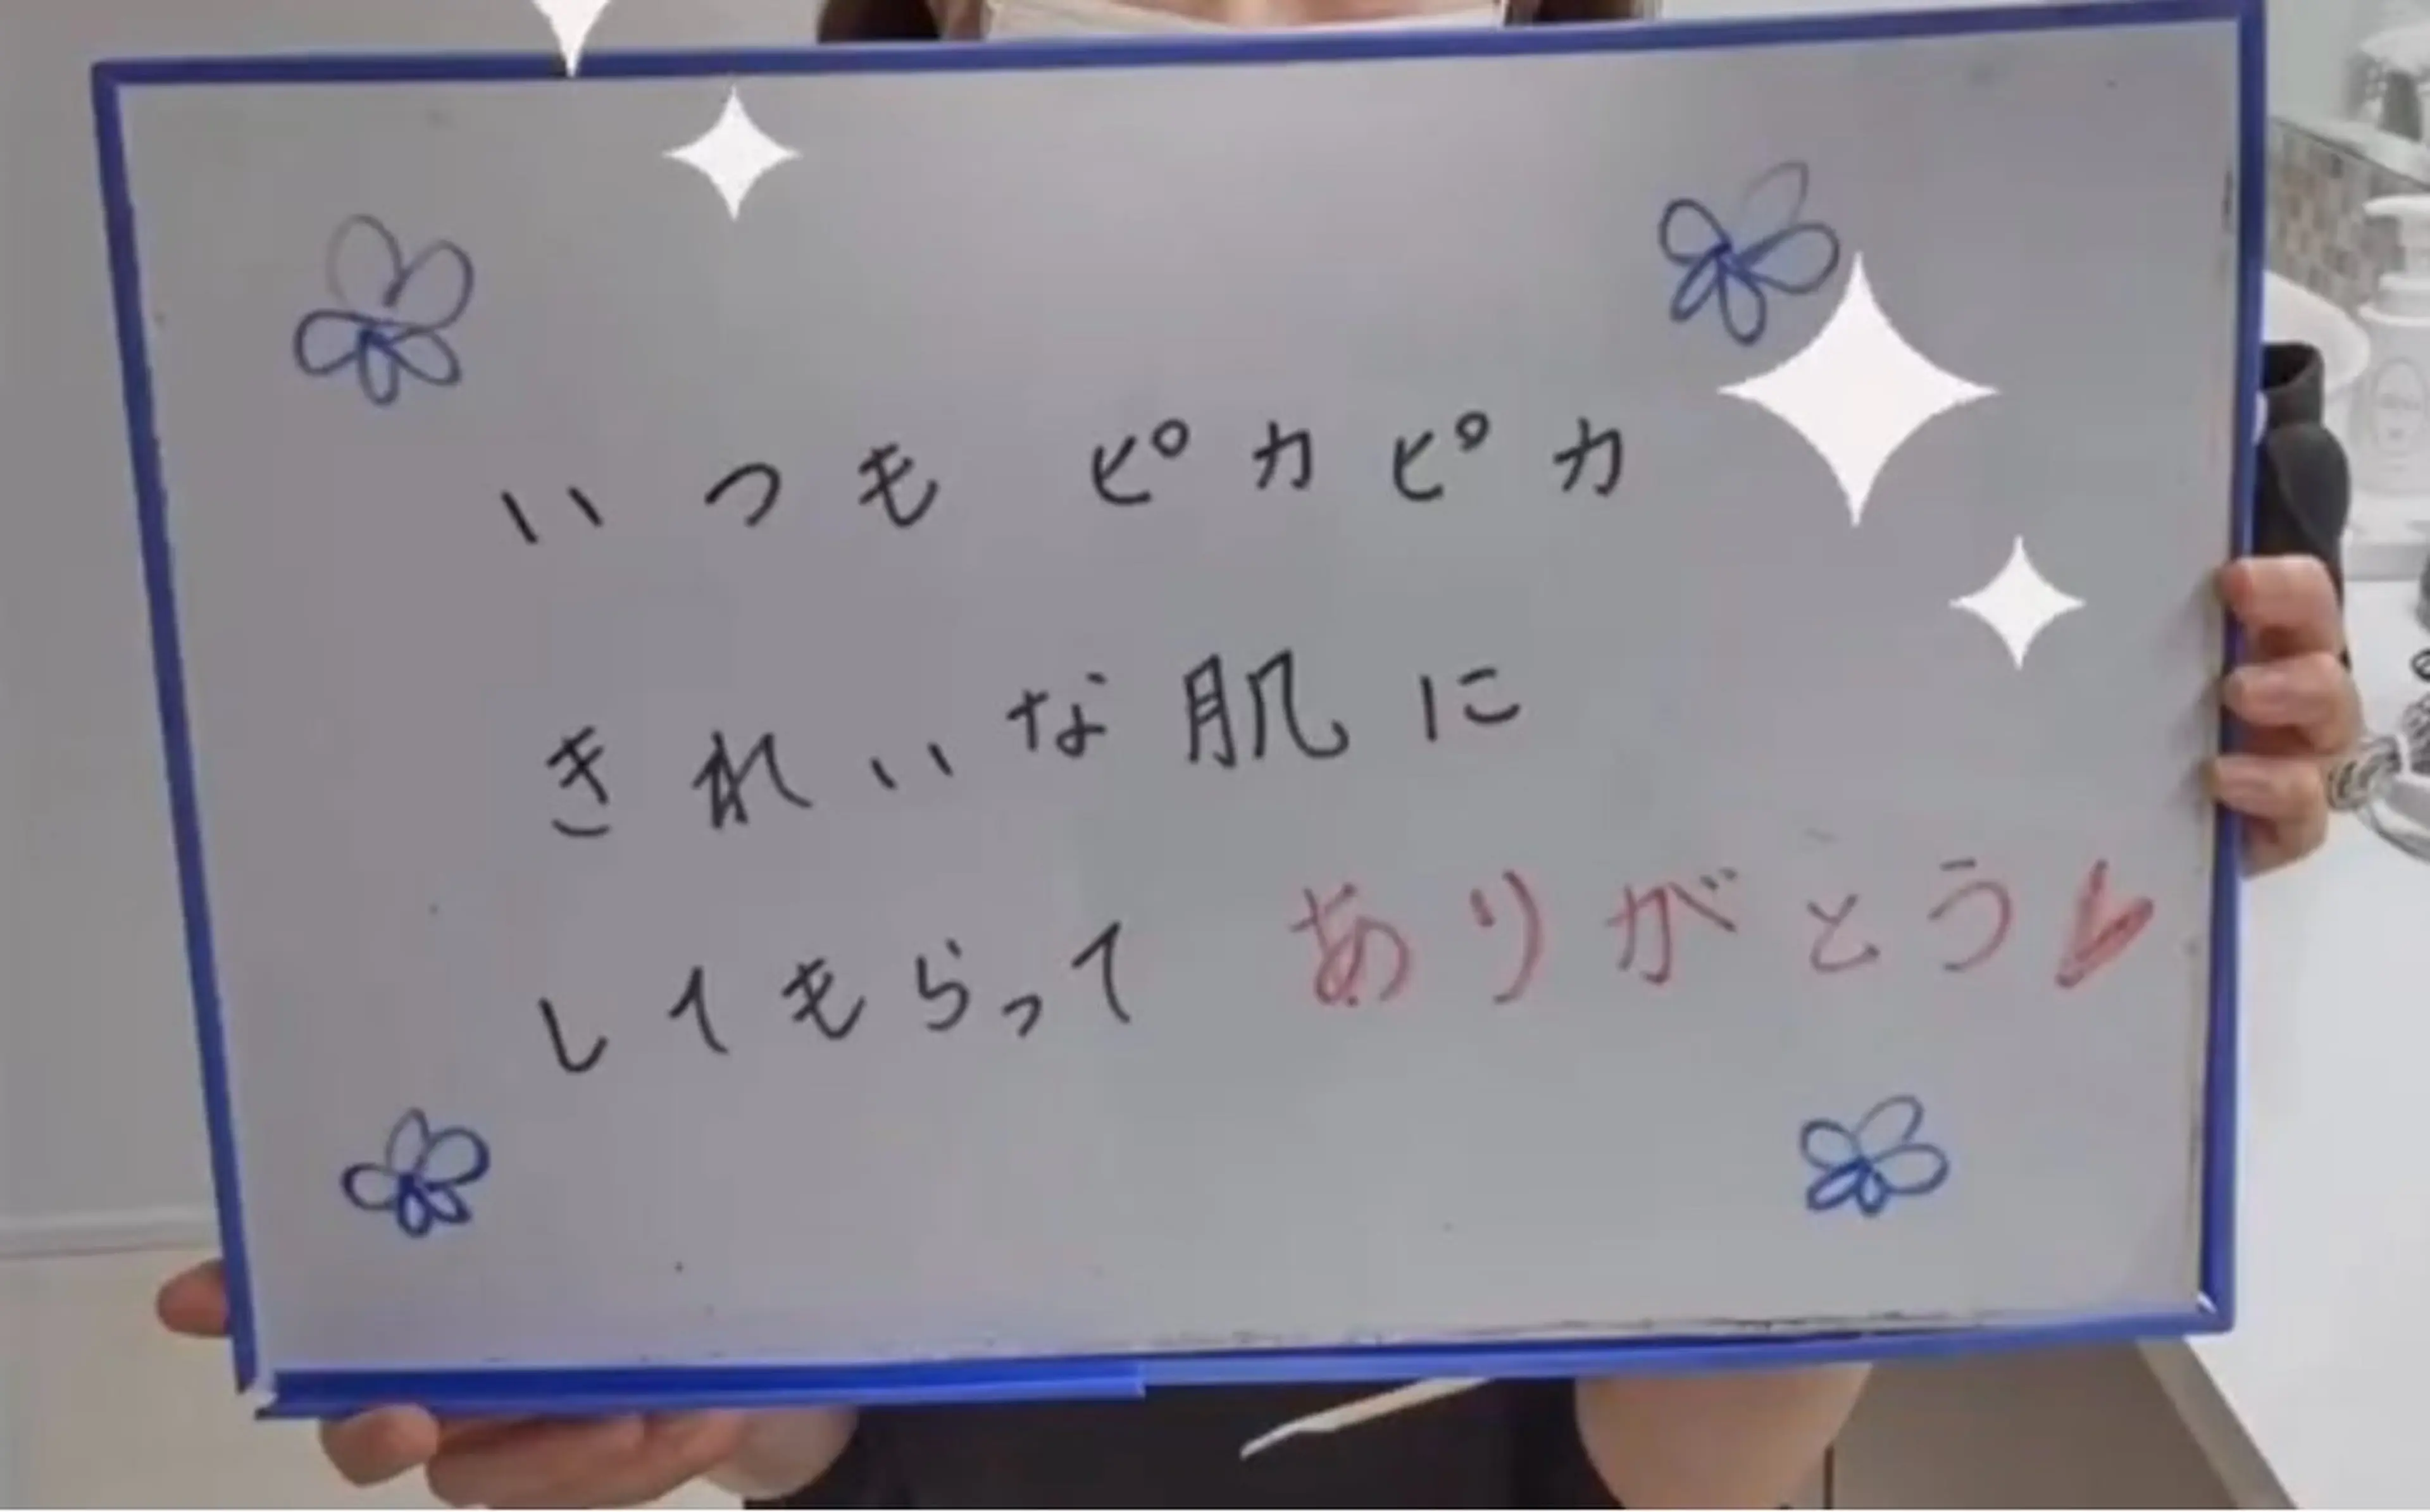 いつもピカピカ
きれいな肌に
してもらって ありがとう♥